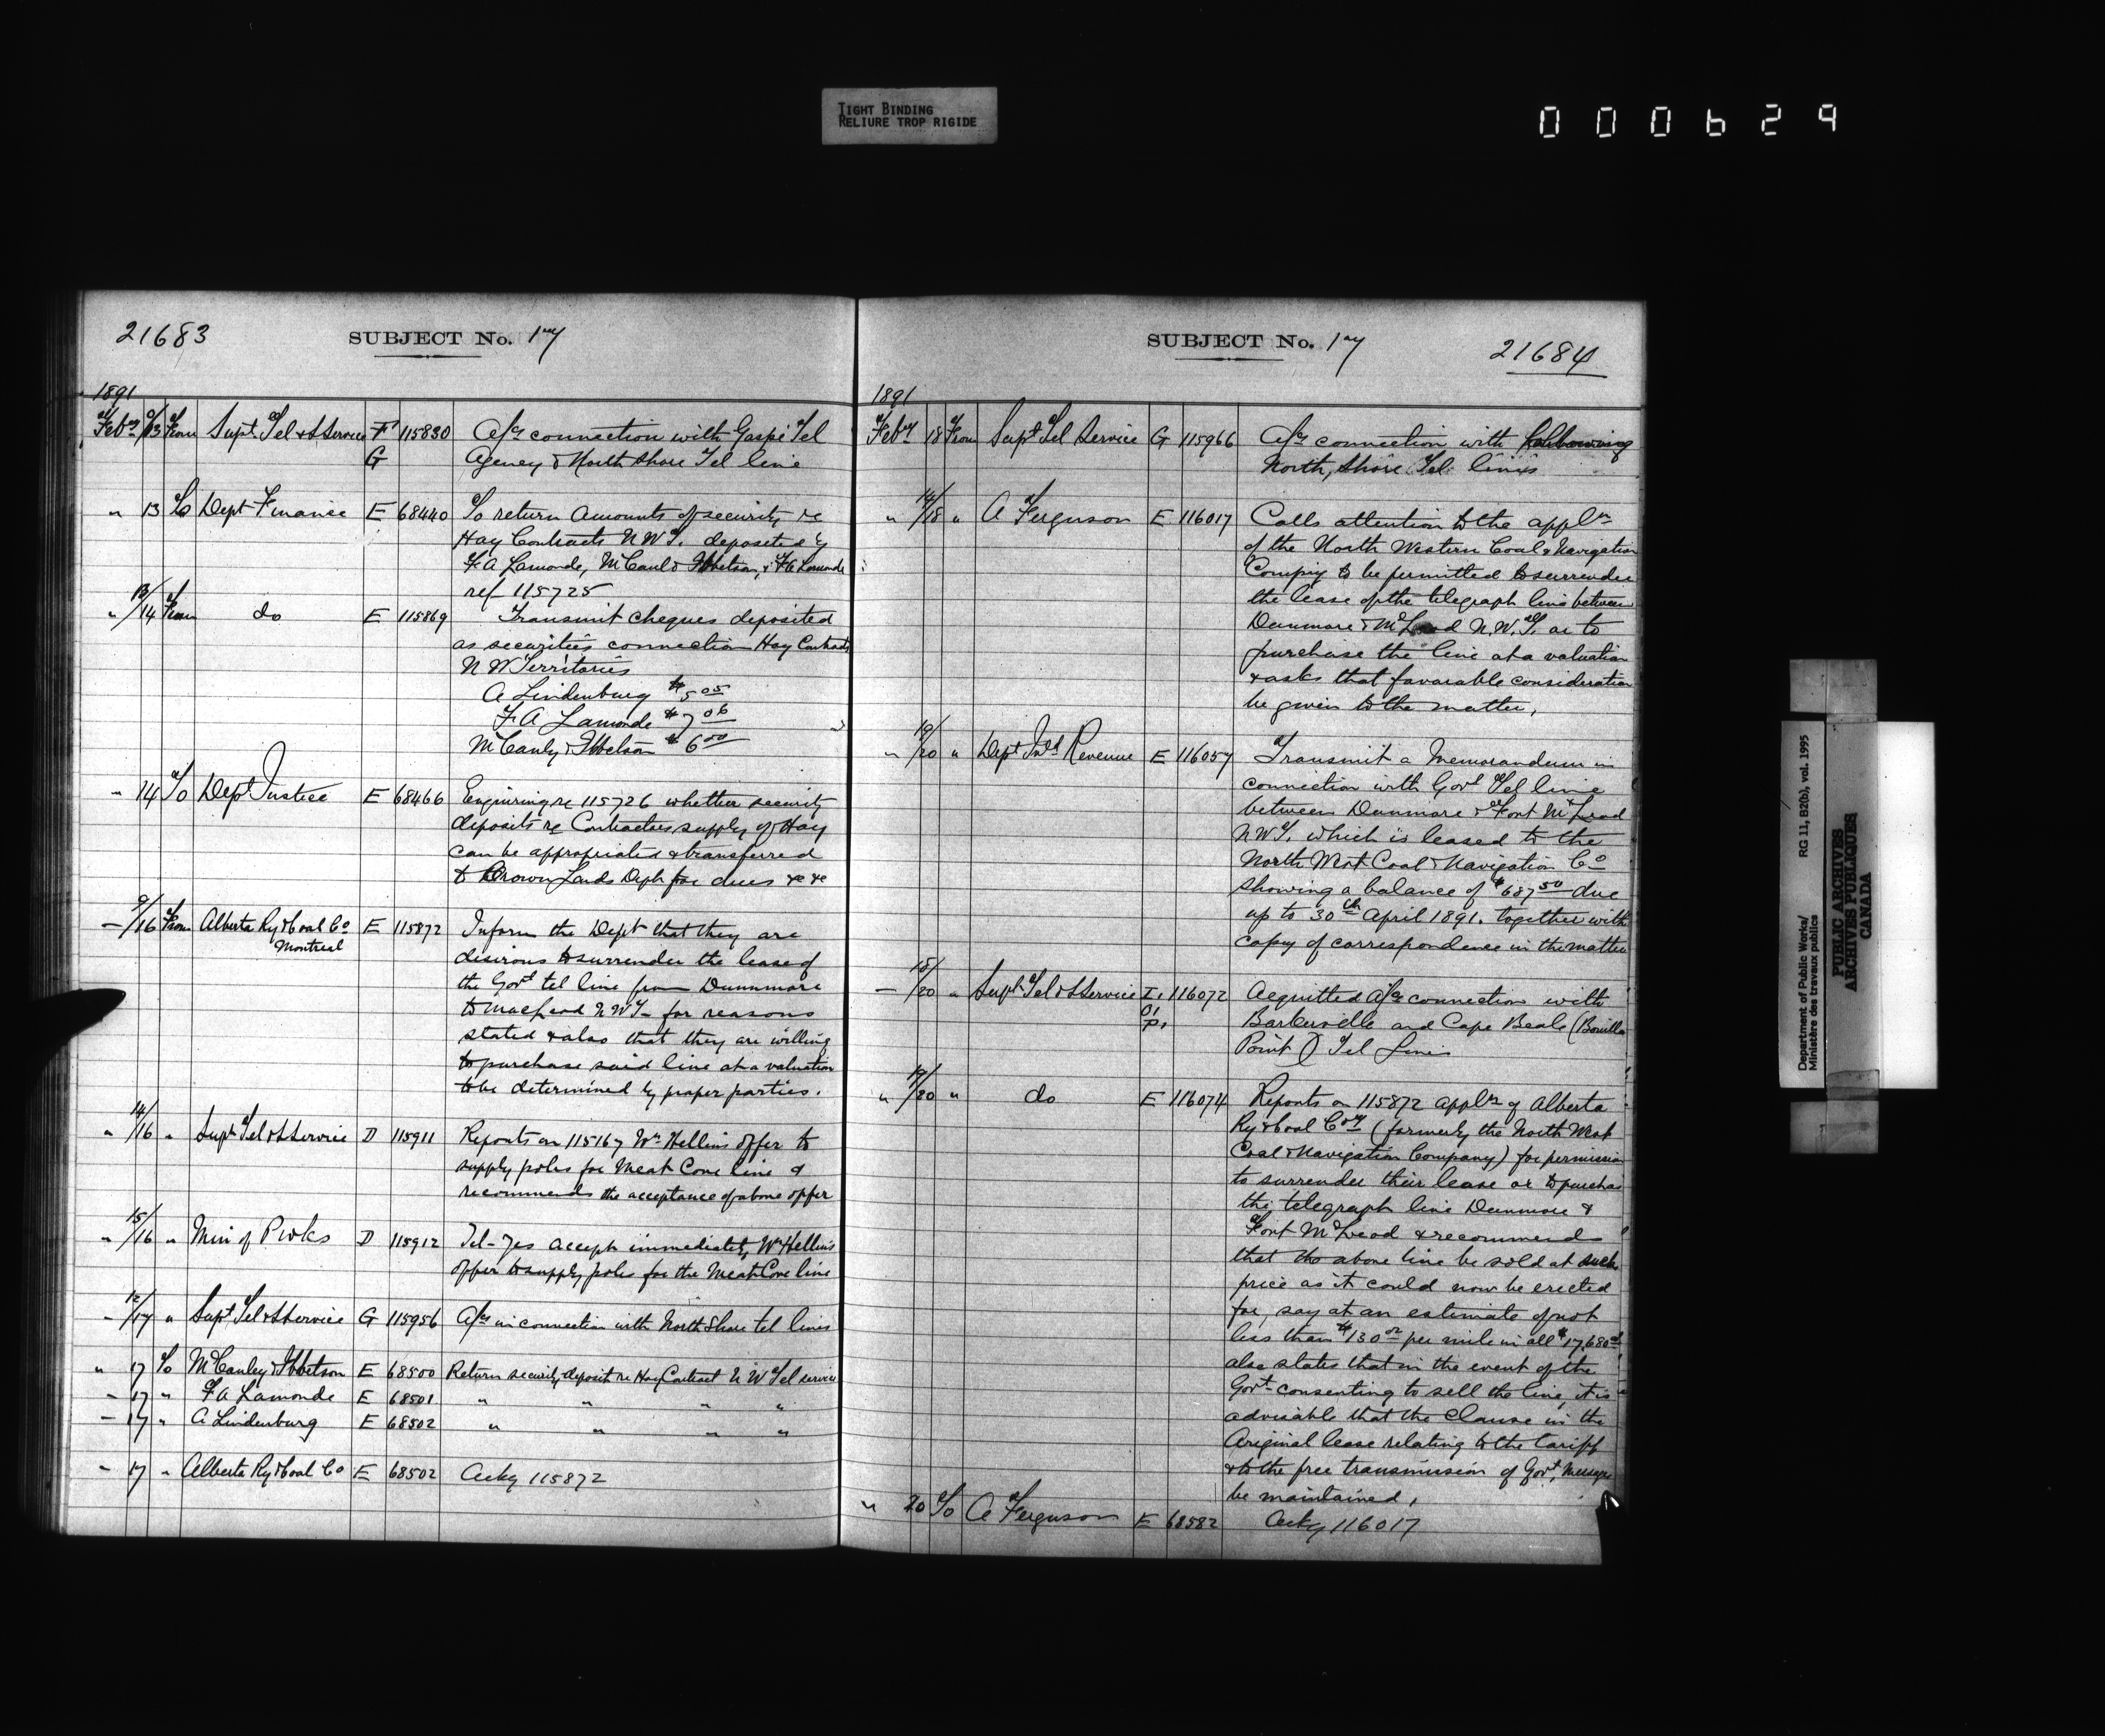 TIGHT BINDING
RELIURE TROP RIGIDE
000629
21683
SUBJECT No. 17
1891
Feby 9/13 From Supt Tel & S Service F 115830 A/cs connection with Gaspé Tel
G Agency & North Shore Tel line
" 13 To Dept Finance E 68440 To return amounts of security re
Hay Contracts N W T. deposited by
F A Lamonde, McCaul & Ibbetson, & F A Lamonde
ref 115725
" 13/14 From do E 115869 Transmit cheques deposited
as securities connection Hay Contracts
N W Territories
A Lindenburg $5 05
F A Lamonde $7 06
McCauly & Ibbetson $6 00
" 14 To Dept Justice E 68466 Enquiring re 115726 whether security
deposits re Contractors supply of Hay
can be appropriated & transferred
to Crown Lands Dept for dues &c &c
— 9/16 From Alberta Ry & Coal Co E 115872 Inform the Dept that they are
Montreal
desirous to surrender the lease of
the Govt tel line from Dunnmore
to MacLeod N W T - for reasons
stated & also that they are willing
to purchase said line at a valuation
to be determined by proper parties.
" 14/16 " Supt Tel & S Service D 115911 Reports on 115167 Wm Hellins offer to
supply poles for Meat Cove line &
recommends the acceptance of above offer
" 15/16 " Min of P Wks D 115912 Tel - Yes accept immediately Wm Hellins
offer to supply poles for the Meat Cove line
- 12/17 " Supt Tel & S Service G 115956 A/cs in connection with North Shore tel lines
" 17 To McCauley & Ibbetson E 68500 Return security deposit re Hay Contract N W Tel service
- 17 " F A Lamonde E 68501 " " " "
- 17 " A Lindenburg E 68502 " " " "
- 17 " Alberta Ry & Coal Co E 68502 Ackg 115872
SUBJECT No. 17
21684
1891
Feby 18 From Supt Tel Service G 115966 A/cs connection with following
North Shore Tel lines
" 14/18 " A Ferguson E 116017 Calls attention to the appln
of the North Western Coal & Navigation
Compny to be permitted to surrender
the lease of the telegraph line between
Dunmore & McLeod N.W.T. or to
purchase the line at a valuation
& asks that favorable consideration
be given to the matter,
" 19/20 " Dept Inld Revenue E 116057 Transmit a Memorandum in
connection with Govt Tel line
between Dunmore & Fort McLeod
N W T. which is leased to the
North West Coal & Navigation Co
showing a balance of $687 50 due
up to 30th April 1891. together with
copy of correspondence in the matter
— 18/20 " Supt Tel & S Service I. 116072 Acquitted A/cs connection with
O.
P. Barkerville and Cape Beale (Bonilla
Point) Tel Lines
" 19/20 " do E 116074 Reports on 115872 appln of Alberta
Ry & Coal Coy (formerly the North West
Coal & Navigation Company) for permission
to surrender their lease or to purchase
the telegraph line Dunmore &
Fort McLeod & recommends
that the above line be sold at such
price as it could now be erected
for, say at an estimate of not
less than $130 00 per mile in all $17,680 00
also states that in the event of the
Govt consenting to sell the line, it is
advisable that the Clause in the
Original lease relating to the tariff
& to the free transmission of Govt. Messages
be maintained,
" 20 To A Ferguson E 68582 Ackg 116017
Department of Public Works/
Ministère des travaux publics
RG 11, B2(b), vol. 1995
PUBLIC ARCHIVES
ARCHIVES PUBLIQUES
CANADA